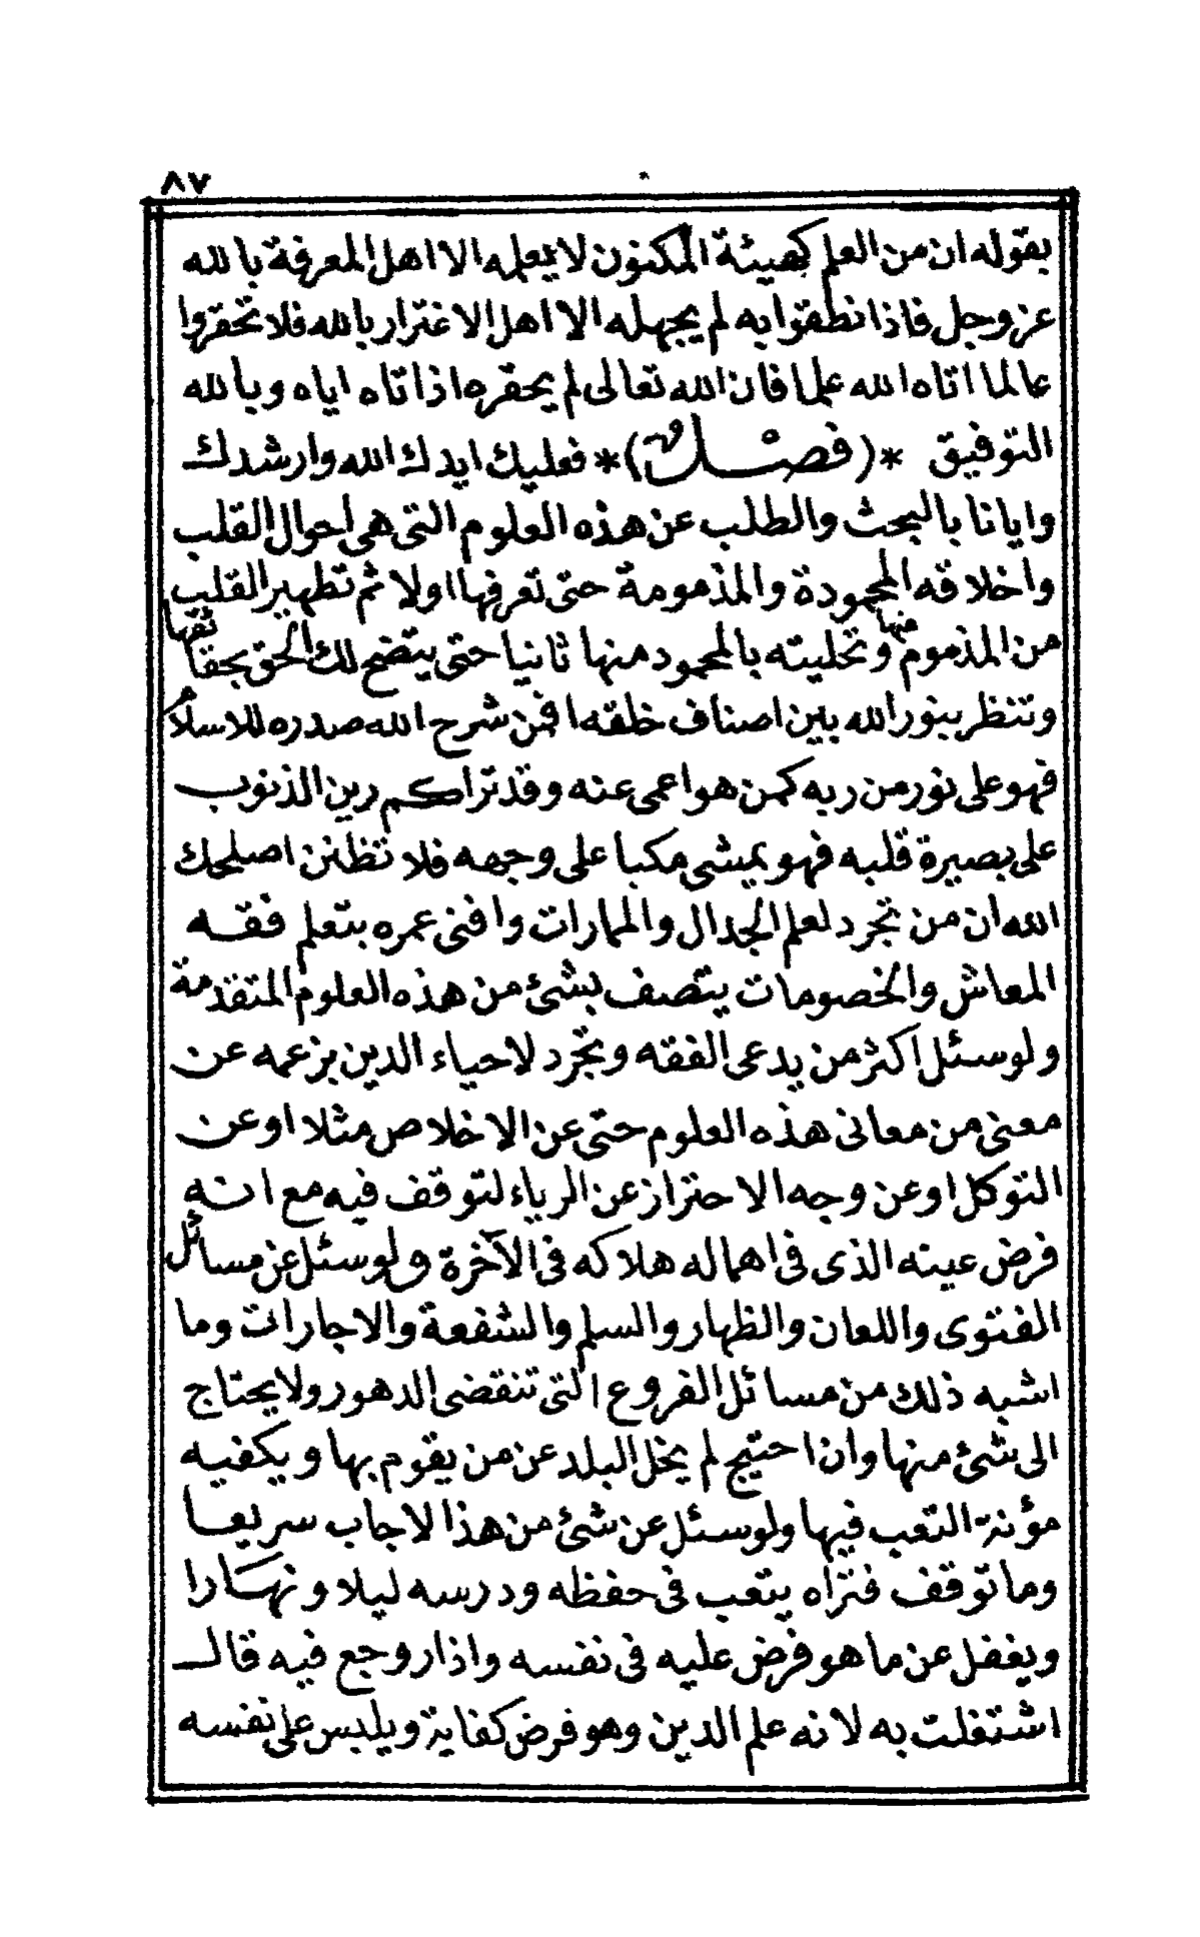 ٨٧
بقوله ان من العلم كهيئة المكنون لا يعلمه الا اهل المعرفة بالله
عز وجل فاذا نطقوا به لم يجهله الا اهل الاغترار بالله فلا تحقروا
عالما اتاه الله علما فان الله تعالى لم يحقره اذا تاه اياه وبالله
التوفيق *(فصل)* فعليك ايدك الله وارشدك
وايانا بالبحث والطلب عن هذه العلوم التى هى احوال القلب
واخلاقه المحمودة والمذمومة حتى تعرفها اولا ثم تطهير القلب
من المذموم منها وتحليته بالمحمود منها ثانيا حتى يتضح لك الحق بحقائقها
وتنظر بنور الله بين اصناف خلقه افمن شرح الله صدره للاسلام
فهو على نور من ربه كمن هو اعمى عنه وقد تراكم رين الذنوب
على بصيرة قلبه فهو يمشى مكبا على وجهه فلا تظنن اصلحك
الله ان من تجرد لعلم الجدال والمارات وافنى عمره بتعلم فقه
المعاش والخصومات يتصف بشئ من هذه العلوم المتقدمة
ولو سئل اكثر من يدعى الفقه وتجرد لاحياء الدين بزعمه عن
معنى من معانى هذه العلوم حتى عن الاخلاص مثلا او عن
التوكل او عن وجه الاحتراز عن الرياء لتوقف فيه مع انه
فرض عينه الذى فى اهماله هلاكه فى الآخرة ولو سئل عن مسائل
الفتوى واللعان والظهار والسلم والشفعة والاجارات وما
اشبه ذلك من مسائل الفروع التى تنقضى الدهور ولا يحتاج
الى شئ منها وان احتيج لم يخل البلد عن من يقوم بها ويكفيه
مؤنة التعب فيها ولو سئل عن شئ من هذا لاجاب سريعا
وما توقف فتراه يتعب فى حفظه ودرسه ليلا ونهارا
ويغفل عن ما هو فرض عليه فى نفسه واذا روجع فيه قال
اشتغلت به لانه علم الدين وهو فرض كفاية ويلبس على نفسه